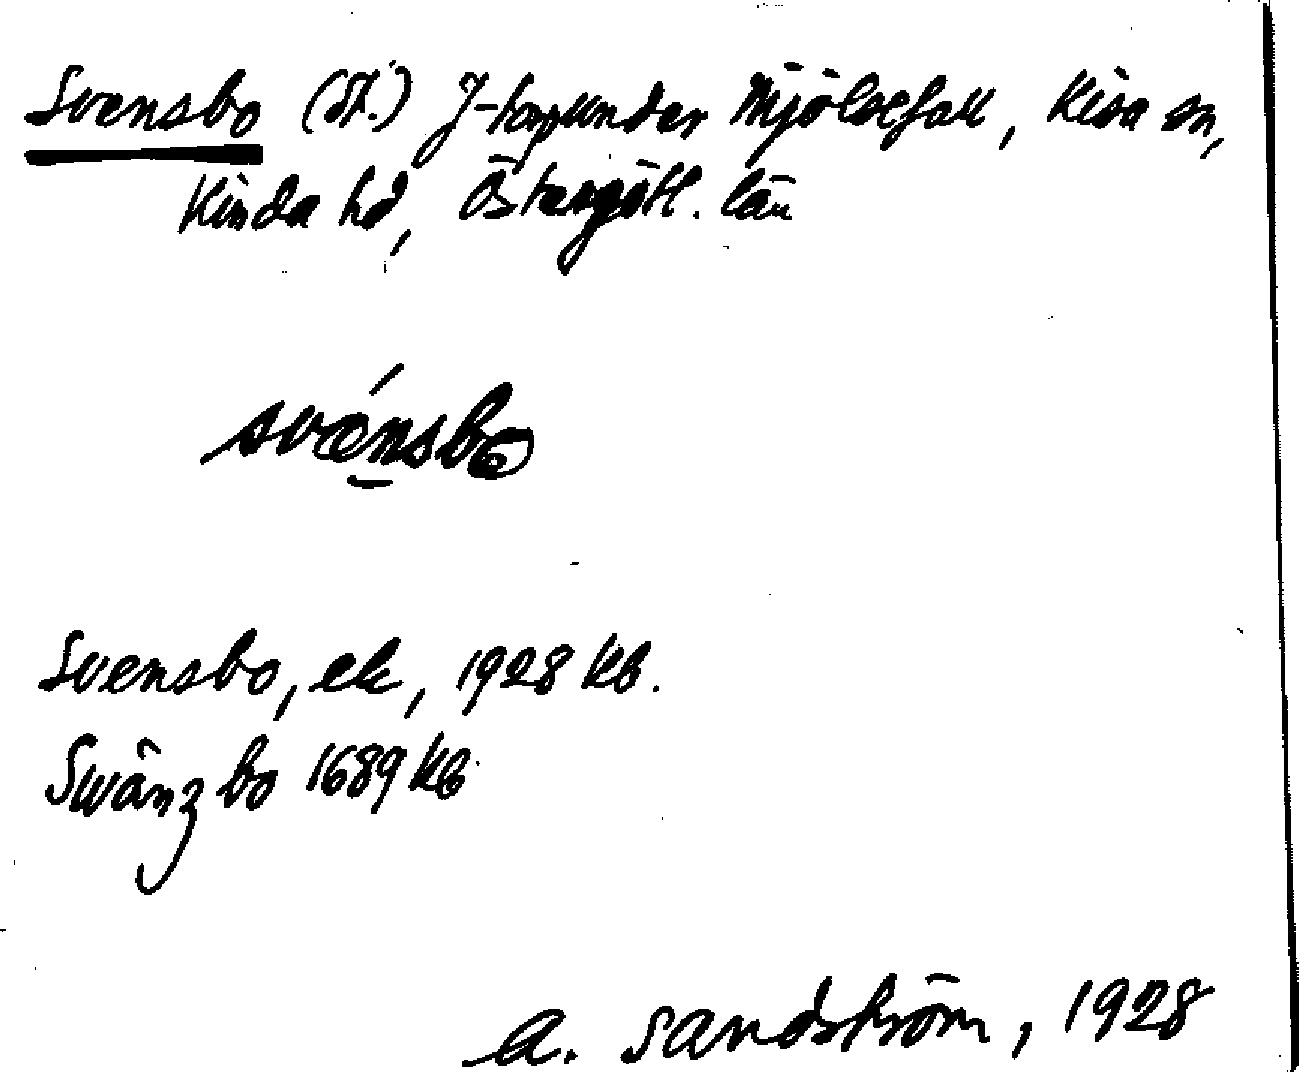 Svensbo (st.) J-torp under Mjölsefall, Kisa sn,
Kinda hd, Östergötl. län
svensbo
Svensbo, ek, 1928 kb.
Swänzbo 1689 kb
A. Sandström, 1928